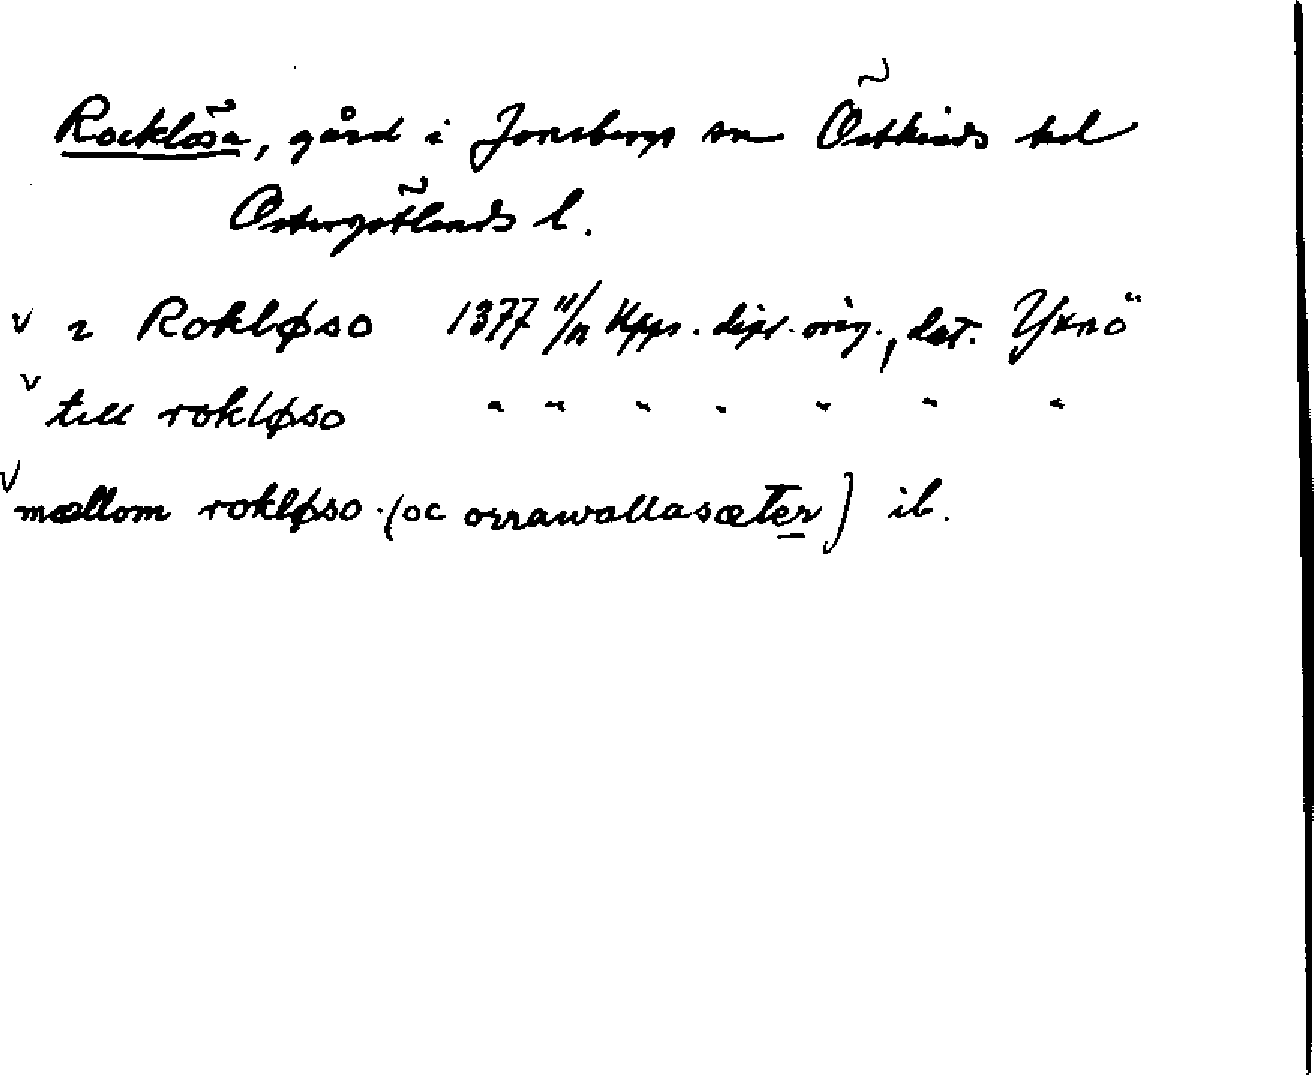 Rocklösa, gård i Jonsbergs sn Östkinds hd
Östergötlands l.
v i Rokløso 1377 11/11 Kpps. dipl. orig., dat. Yxnö
v till rokløso " " " " " " "
v mællom rokløso (oc orrawallasæter) ib.